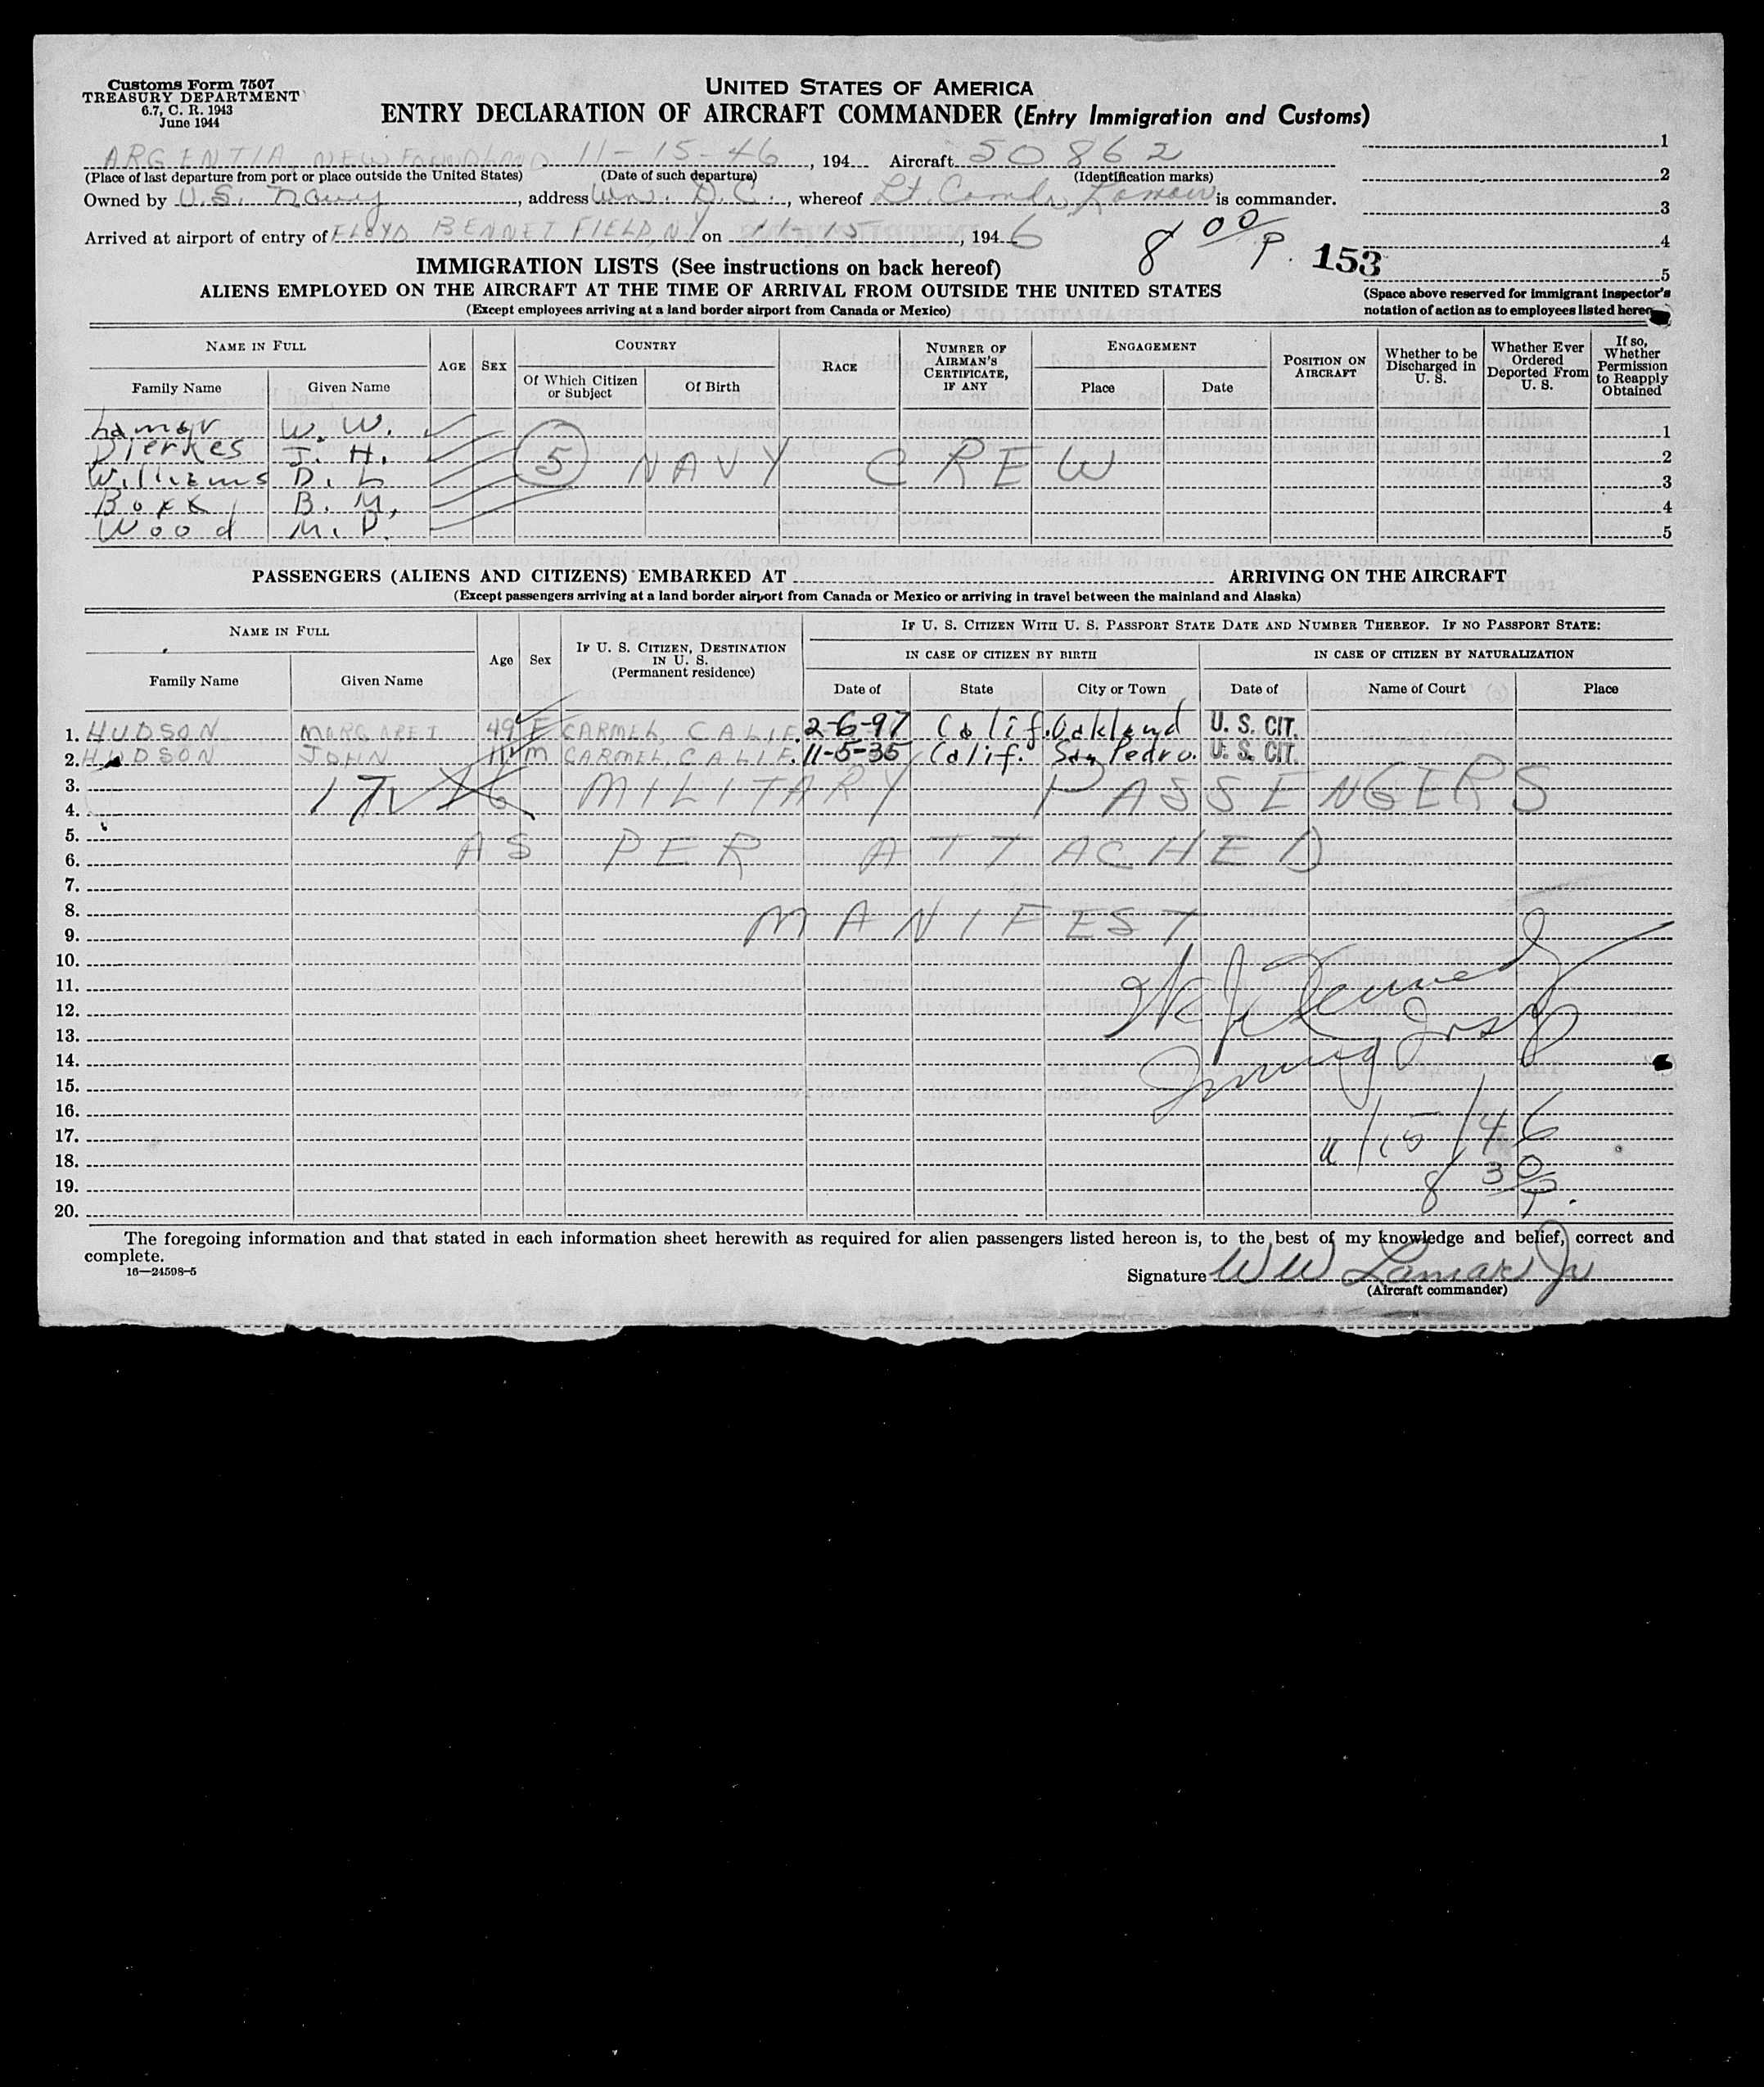 Customs Form 7507
TREASURY DEPARTMENT
6.7, C. R. 1943
June 1944
UNITED STATES OF AMERICA
ENTRY DECLARATION OF AIRCRAFT COMMANDER (Entry Immigration and Customs)
ARGENTIA NEWFOUNDLAND 11-15-46, 194 Aircraft 50862
(Place of last departure from port or place outside the United States) (Date of such departure) (Identification marks)
Owned by U.S. Navy, address Wn. D.C., whereof Lt. Comdr Lamar is commander.
Arrived at airport of entry of FLOYD BENNET FIELD, NY on 11-15, 1946
8 00 P. 153
1
2
3
4
5
(Space above reserved for immigrant inspector's
notation of action as to employees listed hereon
IMMIGRATION LISTS (See instructions on back hereof)
ALIENS EMPLOYED ON THE AIRCRAFT AT THE TIME OF ARRIVAL FROM OUTSIDE THE UNITED STATES
(Except employees arriving at a land border airport from Canada or Mexico)
NAME IN FULL
Family Name Given Name
AGE SEX
COUNTRY
Of Which Citizen or Subject Of Birth
RACE
NUMBER OF AIRMAN'S CERTIFICATE, IF ANY
ENGAGEMENT
Place Date
POSITION ON AIRCRAFT
Whether to be Discharged in U. S.
Whether Ever Ordered Deported From U. S.
If so, Whether Permission to Reapply Obtained
Lamar W. W. 1
Dierkes J. H. 2
5 NAVY CREW
Williams D. L 3
B. M. 4
Wood M. D. 5
PASSENGERS (ALIENS AND CITIZENS) EMBARKED AT ARRIVING ON THE AIRCRAFT
(Except passengers arriving at a land border airport from Canada or Mexico or arriving in travel between the mainland and Alaska)
NAME IN FULL
Family Name Given Name
Age Sex
IF U. S. CITIZEN, DESTINATION IN U. S.
(Permanent residence)
IF U. S. CITIZEN WITH U. S. PASSPORT STATE DATE AND NUMBER THEREOF. IF NO PASSPORT STATE:
IN CASE OF CITIZEN BY BIRTH IN CASE OF CITIZEN BY NATURALIZATION
Date of State City or Town Date of Name of Court Place
1. HUDSON MARGARET 49 F CARMEL, CALIF. 2-6-97 Calif. Oakland U. S. CIT.
2. HUDSON JOHN 11 M CARMEL, CALIF. 11-5-35 Calif. San Pedro. U. S. CIT.
3.
17 16 MILITARY PASSENGERS
4.
5.
AS PER ATTACHED
6.
7.
8.
MANIFEST
9.
10.
11.
12.
13.
14.
Immig Insp
15.
16.
17.
11/15/46
18.
8 30 P.
19.
20.
The foregoing information and that stated in each information sheet herewith as required for alien passengers listed hereon is, to the best of my knowledge and belief, correct and
complete.
16—24598-5
Signature WW Lamar Jr
(Aircraft commander)